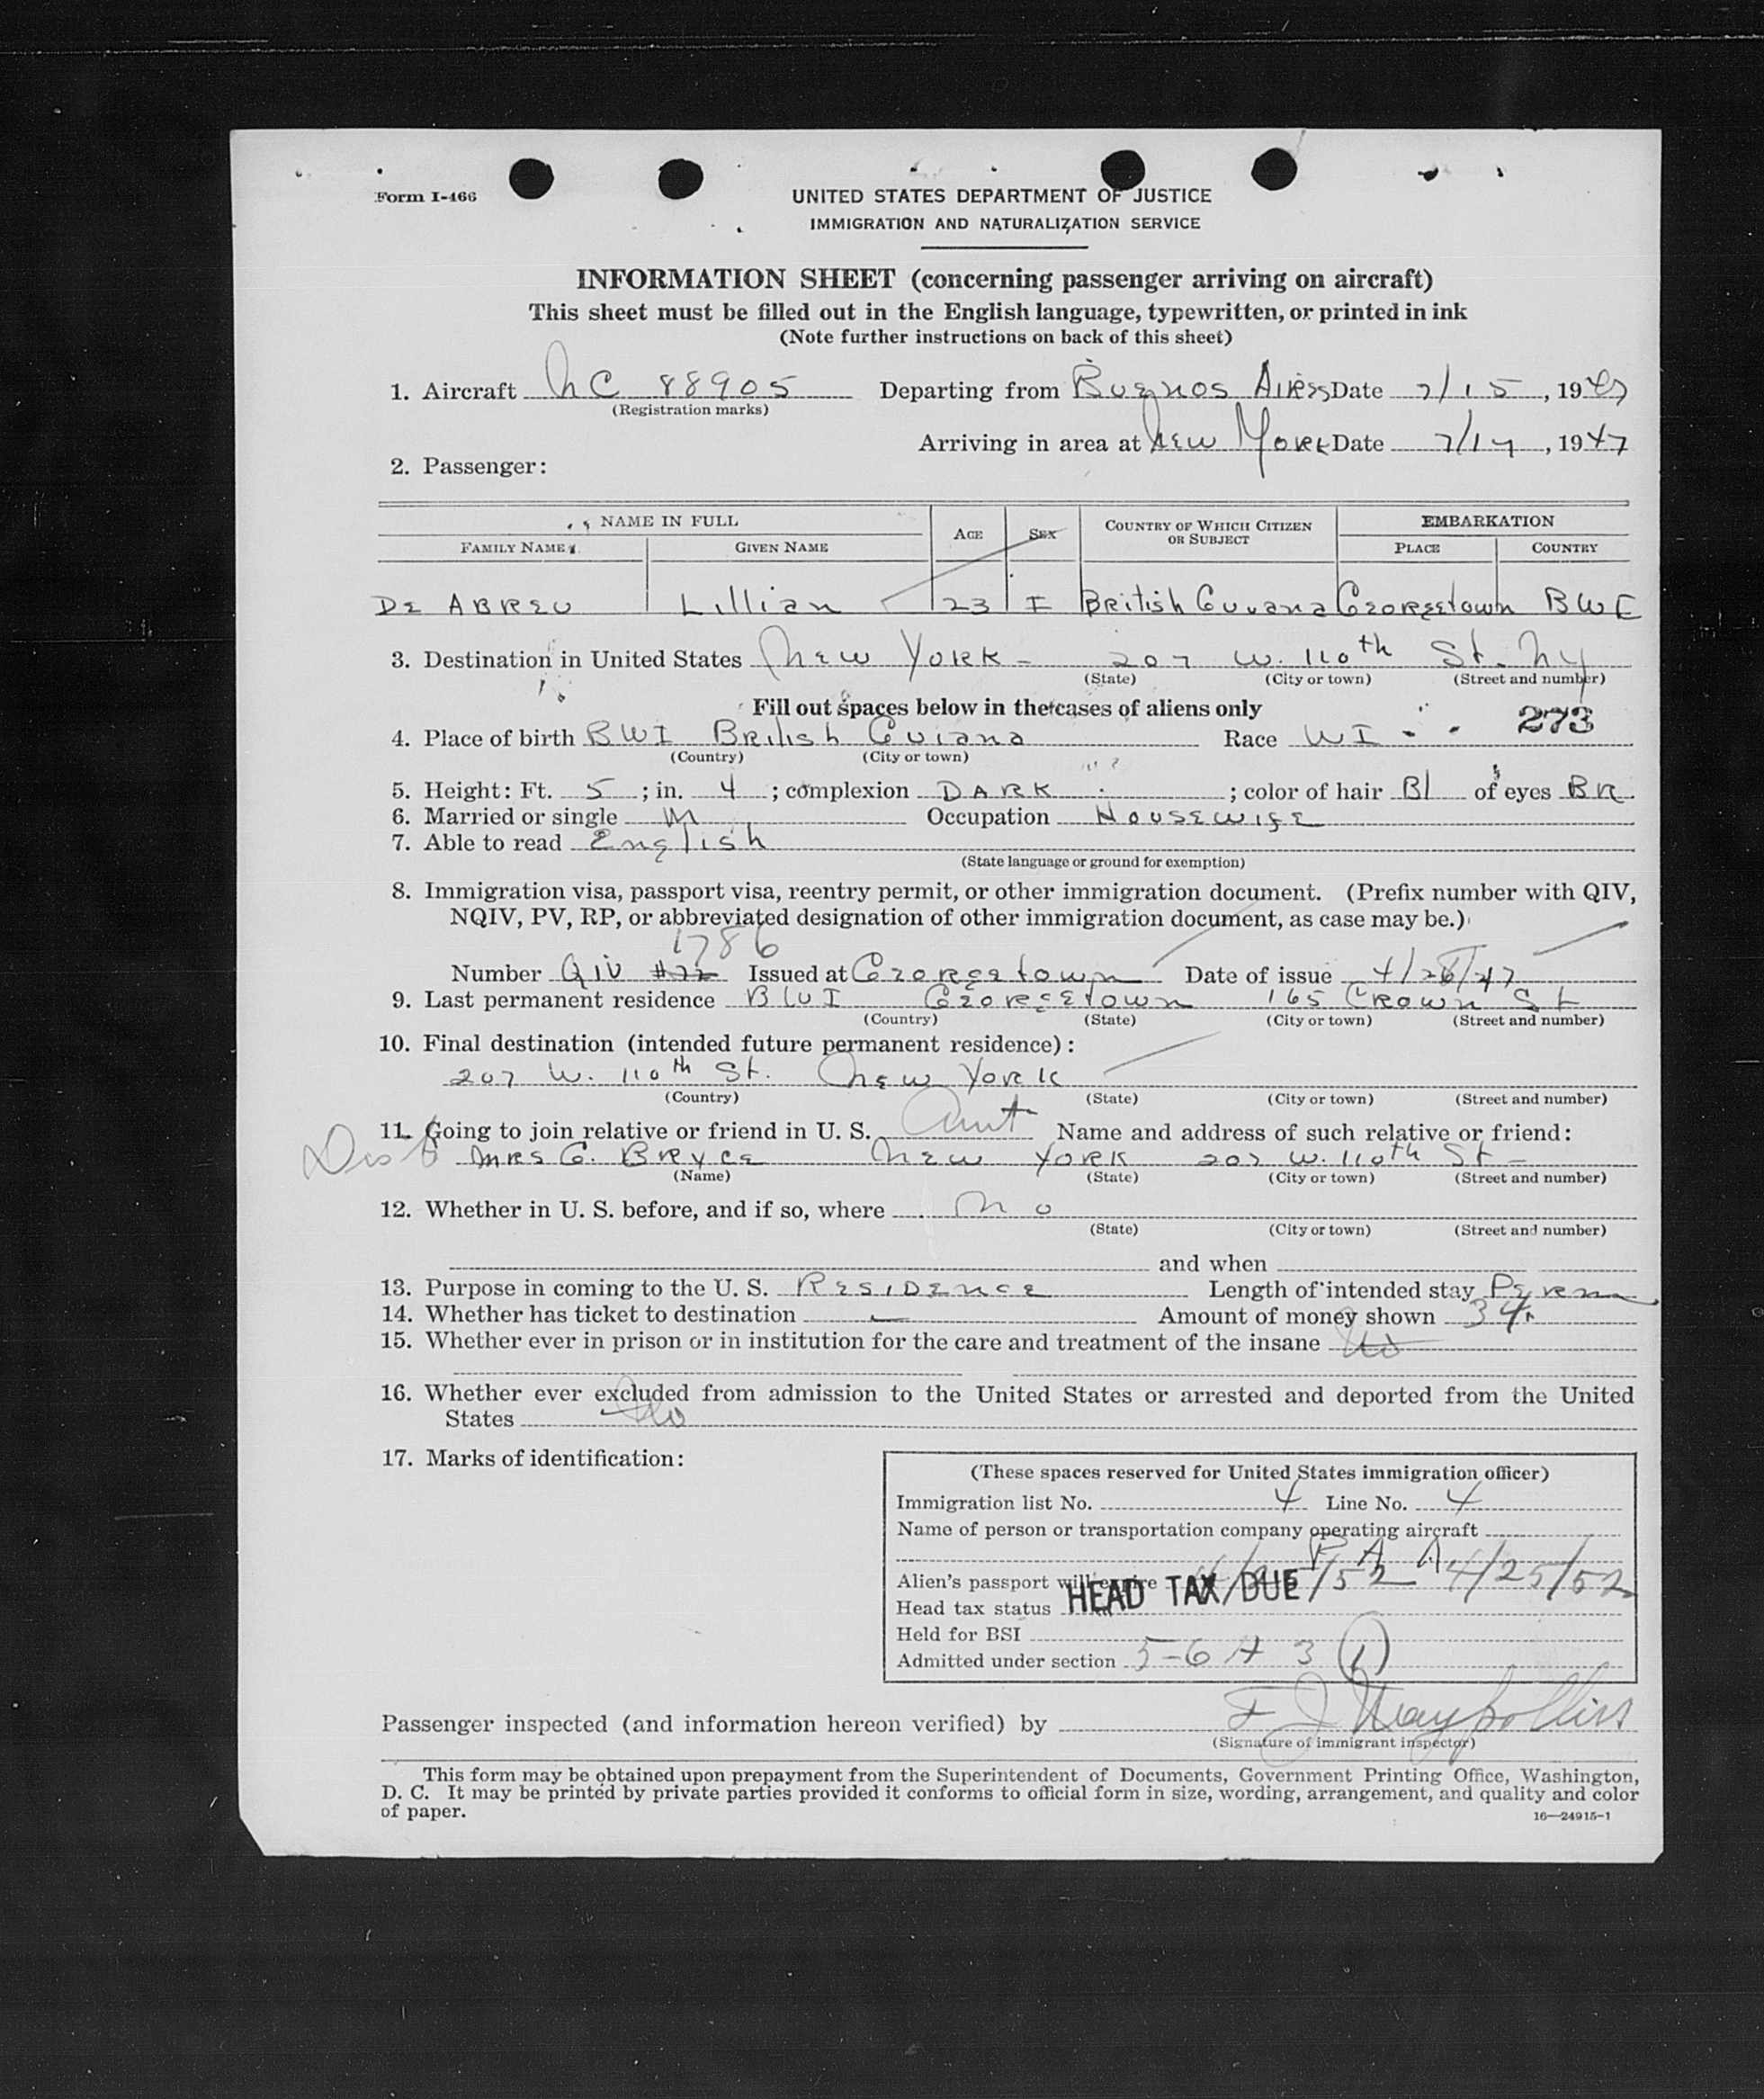 Form I-466
UNITED STATES DEPARTMENT OF JUSTICE
IMMIGRATION AND NATURALIZATION SERVICE
INFORMATION SHEET (concerning passenger arriving on aircraft)
This sheet must be filled out in the English language, typewritten, or printed in ink
(Note further instructions on back of this sheet)
1. Aircraft NC 88905 Departing from Buenos Aires Date 7/15, 1947
(Registration marks)
Arriving in area at New York Date 7/17, 1947
2. Passenger:
NAME IN FULL AGE SEX COUNTRY OF WHICH CITIZEN OR SUBJECT EMBARKATION
FAMILY NAME GIVEN NAME PLACE COUNTRY
DE ABREU Lillian 23 F British Guyana Georgetown BWI
3. Destination in United States New York - 207 W. 110th St. NY
(State) (City or town) (Street and number)
Fill out spaces below in the cases of aliens only
273
4. Place of birth BWI British Guiana Race WI
(Country) (City or town)
5. Height: Ft. 5; in. 4; complexion DARK; color of hair Bl of eyes BR.
6. Married or single M Occupation Housewife
7. Able to read English
(State language or ground for exemption)
8. Immigration visa, passport visa, reentry permit, or other immigration document. (Prefix number with QIV,
NQIV, PV, RP, or abbreviated designation of other immigration document, as case may be.)
1786
Number QIV #22 Issued at Georgetown Date of issue 4/28/47
9. Last permanent residence BWI Georgetown 165 Crown St
(Country) (State) (City or town) (Street and number)
10. Final destination (intended future permanent residence):
207 W. 110th St. New York
(Country) (State) (City or town) (Street and number)
11. Going to join relative or friend in U. S. Aunt Name and address of such relative or friend:
Mrs G. Bryce New York 207 W. 110th St -
(Name) (State) (City or town) (Street and number)
12. Whether in U. S. before, and if so, where No
(State) (City or town) (Street and number)
and when
13. Purpose in coming to the U. S. RESIDENCE Length of intended stay Perm
14. Whether has ticket to destination Amount of money shown 34
15. Whether ever in prison or in institution for the care and treatment of the insane No
16. Whether ever excluded from admission to the United States or arrested and deported from the United
States No
17. Marks of identification:
(These spaces reserved for United States immigration officer)
Immigration list No. 4 Line No. 4
Name of person or transportation company operating aircraft
P A A
Alien's passport will expire 4/25/52 4/25/52
Head tax status HEAD TAX DUE
Held for BSI
Admitted under section 5-6 A 3 (1)
Passenger inspected (and information hereon verified) by
(Signature of immigrant inspector)
This form may be obtained upon prepayment from the Superintendent of Documents, Government Printing Office, Washington,
D. C. It may be printed by private parties provided it conforms to official form in size, wording, arrangement, and quality and color
of paper.
16—24915-1